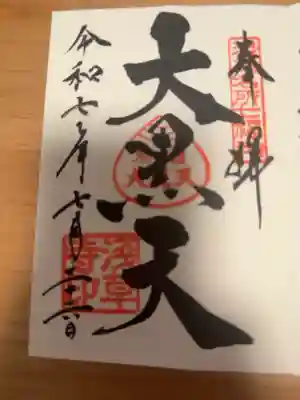 奉拝
大黒天
浅草
寺印
令和七年七月二十六日